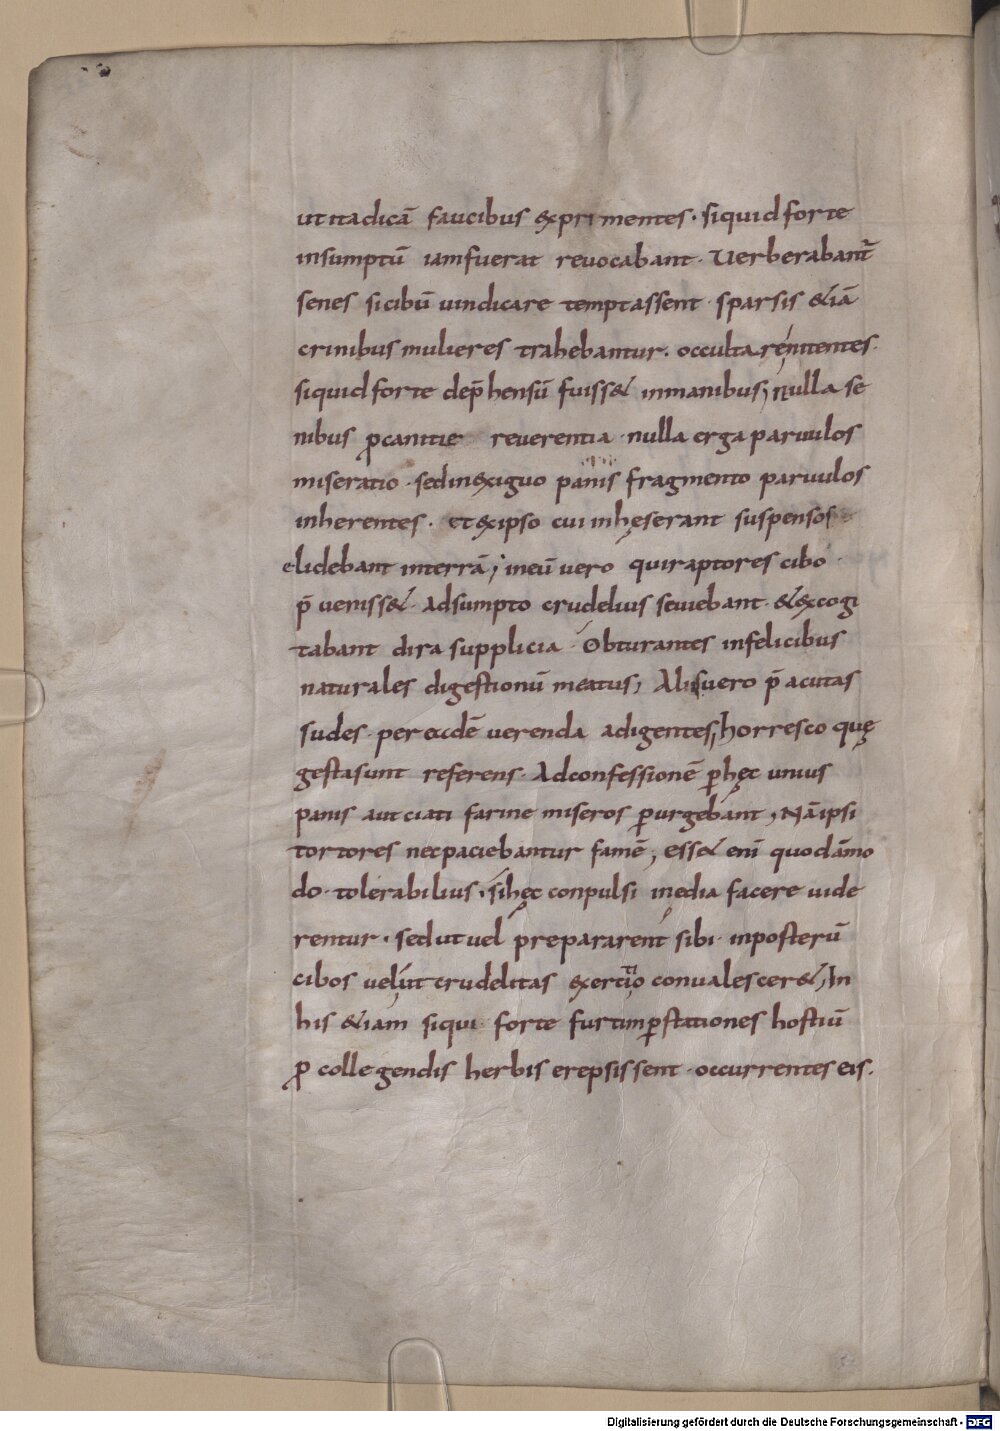 ut itadicā faucibus exprimentes · siquid forte
insumptū iam fuerat revocabant · Verberabant̄
senes sicibū vindicare temptassent · sparsis &iā
crinibus mulieres trahebantur · occulta renitentes ·
siquid forte dep̄hensū fuiss& inmanibus; Nulla se
nibus ꝓcanitie reverentia · nulla erga parvulos
miseratio · sedinexiguo panis fragmento parvulos
inherentes · et exipso cui inhęserant suspensos
elidebant interrā; ineū vero qui raptores cibo
p̄veniss& · Adsumpto crudelius seviebant · & excogi
tabant dira supplicia · Obturantes infelicibus
naturales digestionū meatus; Aliis vero p̄acutas
sudes · per eadē verenda adigentes; horresco quę
gesta sunt referens · Adconfessionē ꝑhęc unius
panis aut ciati farine miseros ꝑurgebant; Nā ipsi
tortores nec paciebantur famē; ess& enī quodāmo
do · tolerabilius · si hęc conpulsi inedia facere vide
rentur · sed ut vel prepararent sibi · inposterū
cibos velut crudelitas exercitio convalescer&; In
his &iam siqui · forte furtim ꝑstationes hostiū
ꝓ collegendis herbis erepsissent · occurrentes eis ·
Digitalisierung gefördert durch die Deutsche Forschungsgemeinschaft - DFG